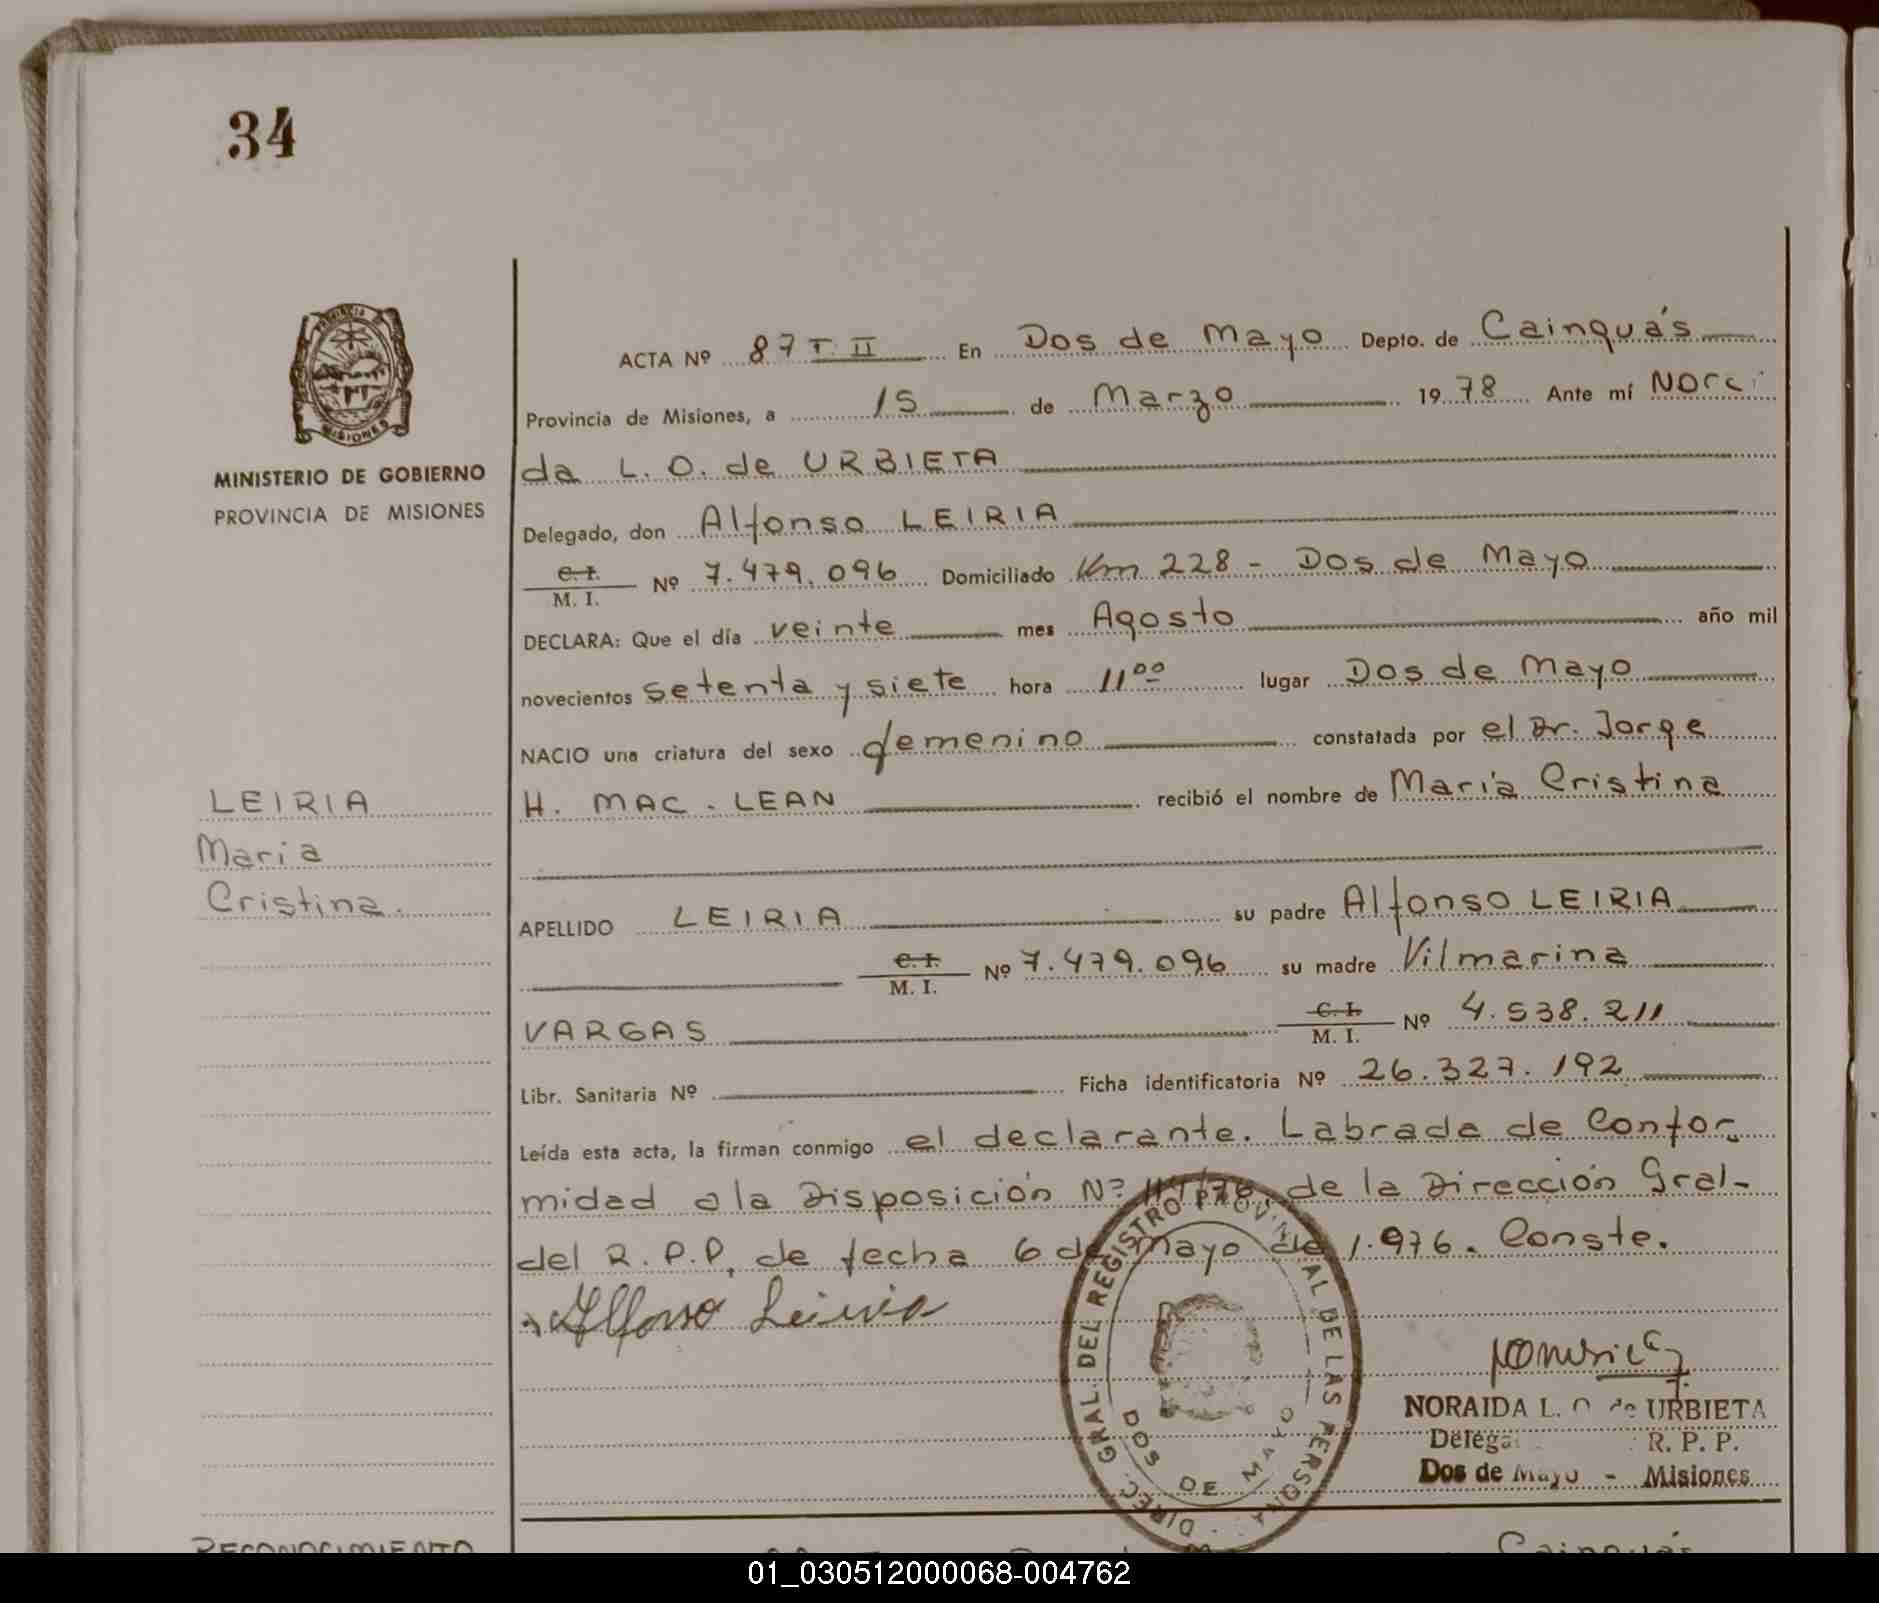 34
PROVINCIA DE
MISIONES
MINISTERIO DE GOBIERNO
PROVINCIA DE MISIONES
ACTA Nº 87 T. II En Dos de Mayo Depto. de Cainguás
Provincia de Misiones, a 15 de Marzo 1978 Ante mí Norai
da L. O. de URBIETA
Delegado, don Alfonso LEIRIA
C. I.
M. I. Nº 7.479.096 Domiciliado Km 228 - Dos de Mayo
DECLARA: Que el día veinte mes Agosto año mil
novecientos setenta y siete hora 11 00 lugar Dos de Mayo
NACIO una criatura del sexo femenino constatada por el Dr. Jorge
LEIRIA H. MAC. LEAN recibió el nombre de María Cristina
Maria
Cristina.
APELLIDO LEIRIA su padre Alfonso LEIRIA
C. I.
M. I. Nº 7.479.096 su madre Vilmarina
VARGAS C. I.
M. I. Nº 4.538.211
Libr. Sanitaria Nº Ficha identificatoria Nº 26.327.192
Leída esta acta, la firman conmigo el declarante. Labrada de Confor-
midad a la Disposición Nº de la Dirección Gral-
del R.P.P. de fecha 6 de Mayo de 1.976. Conste.
Alfonso Leiria
DIREC. GRAL. DEL REGISTRO PROVINCIAL DE LAS PERSONAS
DOS DE MAYO
NORAIDA L. O. de URBIETA
Delega R. P. P.
Dos de Mayo - Misiones
RECONOCIMIENTO Cainguás
01_030512000068-004762